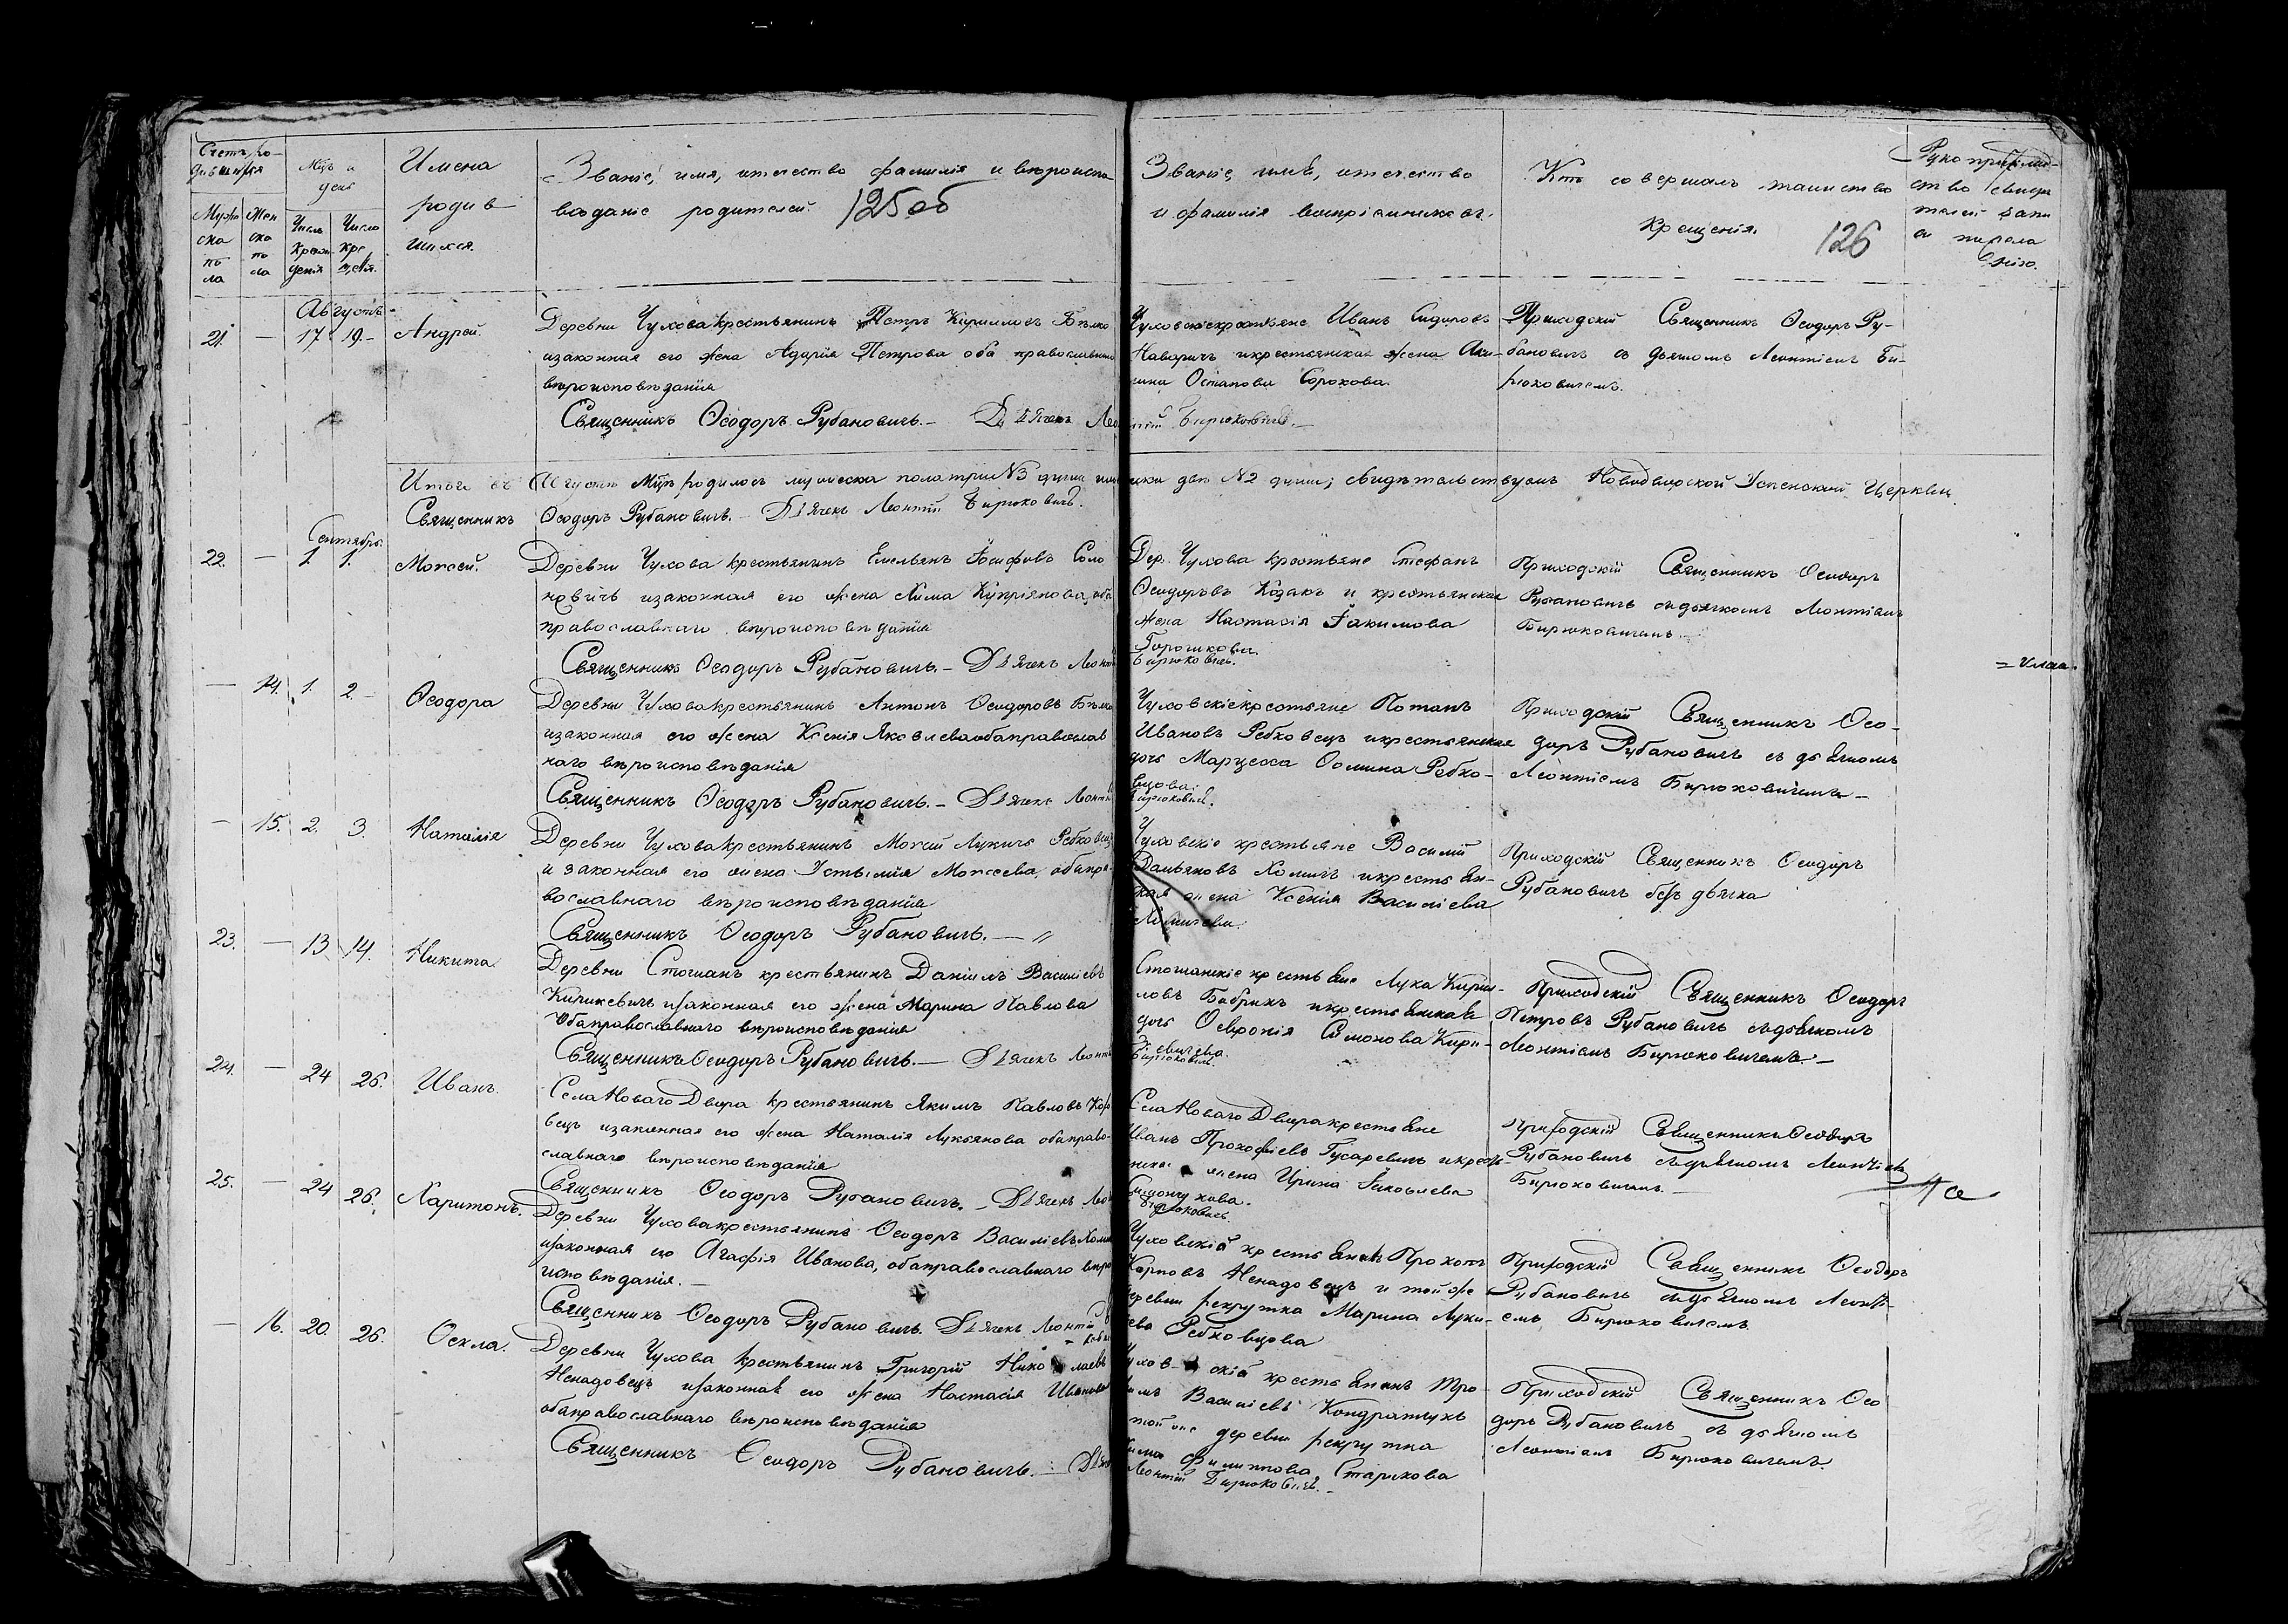 Счетъ ро-
дившихся
Мужe
ска
по
ла
Жен
ска
по
ла
Мцъ и
день
Число
рож-
денія
Число
кре
щенія.
Имена
родив
шихся.
Званіе, имя, отечество фамилія и вѣроиспо
вѣданіе родителей.
125об
Званіе, имя, отечество
и фамилія воспріемниковъ.
Кто совершалъ таинство
крещенія.
126
Рукоприклад-
ство свидѣ
телей запи
си по жела
нію.
Августъ
21. — 17. 19. — Андрей.
Деревни Чухова крестьянинъ Петръ Кирилловъ
изаконная его жена Петрова оба православнаго
вѣроисповѣданія
Священникъ Ѳеодоръ Рубановичъ. — Дьячекъ Леонтій Бирюковичъ. —
Чуховскіе крестьяне Иванъ Сидоровъ
икрестьянская жена
Остапова
Приходскій Священникъ Ѳеодоръ Ру-
бановичъ съ дьячкомъ Леонтіемъ Би-
рюковичемъ.
Итого въ Августѣ Мцѣ родилось мужеска пола три №3 души женска двѣ №2 души; свидѣтельствуемъ Новодворской Успенской Церкви
Священникъ Ѳеодоръ Рубановичъ. — Дьячекъ Леонтій Бирюковичъ.
Сентябрь.
22. — 1. 1. Моѵсей.
Деревни Чухова крестьянинъ Емельянъ Іосифовъ Соло
новичъ изаконная его жена Купріянова, оба
православнаго вѣроисповѣданія
Священникъ Ѳеодоръ Рубановичъ. — Дьячекъ Леонтій
Бирюковичъ.
Дер. Чухова крестьяне Стефанъ
Ѳеодоровъ Козакъ и крестьянская
жена Настасія Іакимова
Горошкова.
Приходскій Священникъ Ѳеодоръ
Рубановичъ съ дьячкомъ Леонтіемъ
Бирюковичемъ.
— 14. 1. 2. — Ѳеодора
Деревни Чухова крестьянинъ Антонъ Ѳеодоровъ
изаконная его жена Ксенія Яковлева оба православ
наго вѣроисповѣданія
Священникъ Ѳеодоръ Рубановичъ. — Дьячекъ Леонтій
Бирюковичъ.
Чуховскіе крестьяне Потапъ
Ивановъ Ребковецъ икрестьянская
дочь Ѳомина Ребко-
вцова.
Приходскій Священникъ Ѳео-
доръ Рубановичъ съ дьячкомъ
Леонтіемъ Бирюковичемъ —
— 15. 2. 3. Наталія
Деревни Чухова крестьянинъ Моѵсей Лукичъ Ребковецъ
и законная его жена Моѵсеева, оба пра-
вославнаго вѣроисповѣданія
Священникъ Ѳеодоръ Рубановичъ. — //
Чуховскіе крестьяне Василій
Хомичъ икрестьян-
кая жена Ксенія Василіева
Хомичева.
Приходскій Священникъ Ѳеодоръ
Рубановичъ безъ дьячка
23. — 13. 14. Никита.
Деревни Стошанъ крестьянинъ Даніилъ Василіевъ
Кирикевичъ изаконная его жена Марина Павлова
Оба православнаго вѣроисповѣданія
Священникъ Ѳеодоръ Рубановичъ. — Дьячекъ Леонтій
Бирюковичъ.
Стошанскіе крестьяне Лука Кирил-
ловъ Бобрикъ икрестьянская
дочь Симонова Кири-
кевичева.
Приходскій Священникъ Ѳеодоръ
Петровъ Рубановичъ съ дьячкомъ
Леонтіемъ Бирюковичемъ. —
24. — 24 26. Иванъ.
Села Новаго Двора крестьянинъ Якимъ Павловъ
изаконная его жена Наталія Лукьянова оба право-
славнаго вѣроисповѣданія
Священникъ Ѳеодоръ Рубановичъ. — Дьячекъ Леонтій
Бирюковичъ.
Села Новаго Двора крестьяне
Иванъ Прокофіевъ Гусаревичъ икрестья-
нская жена Ирина Іаковлева
Приходскій Священникъ Ѳеодоръ
Рубановичъ съ дьячкомъ Леонтіемъ
Бирюковичемъ. —
25. — 24 26. Харитонъ.
Деревни Чухова крестьянинъ Ѳеодоръ Василіевъ
изаконная его Агафія Иванова, оба православнаго вѣро
исповѣданія. —
Священникъ Ѳеодоръ Рубановичъ. Дьячекъ Леонтій
Чуховскій крестьянинъ Прокопъ
Карповъ Ненадовецъ и той же
деревни рекрутка Марина Луки-
ева Ребковцова
Приходскій Священникъ Ѳеодоръ
Рубановичъ съ дьячкомъ Леонті-
емъ Бирюковичемъ.
— 16. 20. 26. Ѳекла.
Деревни Чухова крестьянинъ Григорій Николаевъ
Ненадовецъ изаконная его жена Настасія Иванова
оба православнаго вѣроисповѣданія
Священникъ Ѳеодоръ Рубановичъ. — Дьячекъ
Леонтій Бирюковичъ. —
Чуховскій крестьянинъ Тро-
фимъ Василіевъ Кондратюкъ
той же деревни рекрутка
Филиппова, Старикова
Приходскій Священникъ Ѳео
доръ Рубановичъ съ дьячкомъ
Леонтіемъ Бирюковичемъ.